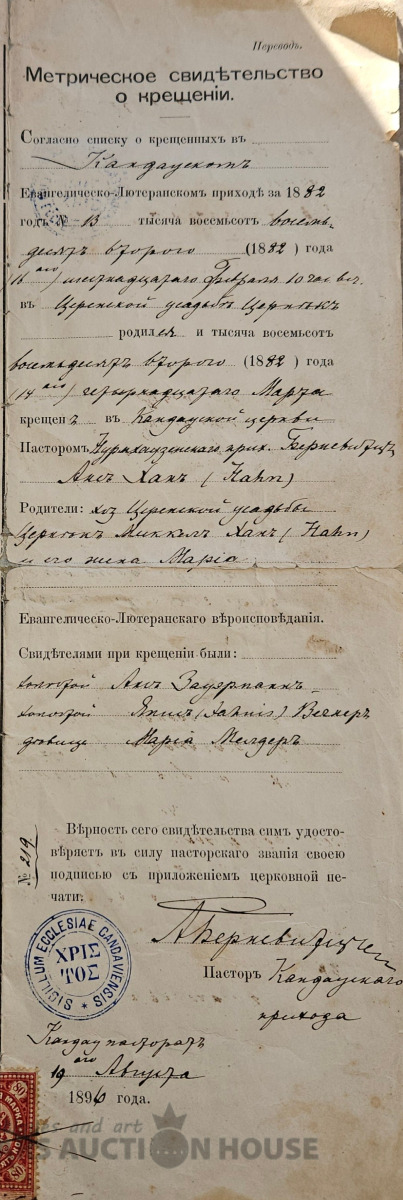 Переводъ.
Метрическое свидѣтельство
о крещеніи.
Согласно списку о крещенныхъ въ
Кандаускомъ
Евангелическо-Лютеранскомъ приходѣ за 1882
годъ № 13 тысяча восемьсотъ восемь-
десятъ второго (1882) года
(16 аго) шестнадцатаго Февраля 10 час веч.
въ Церенской усадьбѣ Цернъкъ
родился и тысяча восемьсотъ
восемьдесятъ второго (1882) года
(14 аго) четырнадцатаго Марта
крещенъ въ Кандауской церкви
Пасторомъ прих. Берневицъ
Ансъ Ханъ (Hahn)
Родители: хоз Церенской усадьбы
Миккель Ханъ (Hahn)
и его жена Марія
Евангелическо-Лютеранскаго вѣроисповѣданія.
Свидѣтелями при крещеніи были:
холостой Ансъ Зауерманнъ
холостой Янис (Jahnis)
дѣвица Марія Мелдеръ
Вѣрность сего свидѣтельства симъ удосто-
вѣряетъ въ силу пасторскаго званія своею
подписью съ приложеніемъ церковной пе-
чати.
№ 219
SIGILLUM ECCLESIAE CANDAVIENSIS
ΧΡΙΣ
ΤΟΣ
А Берневицъ
Пасторъ Кандаускаго
прихода
Кандау пасторатъ
19 аго Августа
1896 года.
80 МАРКА 80
80
and art
AUCTION HOUSE